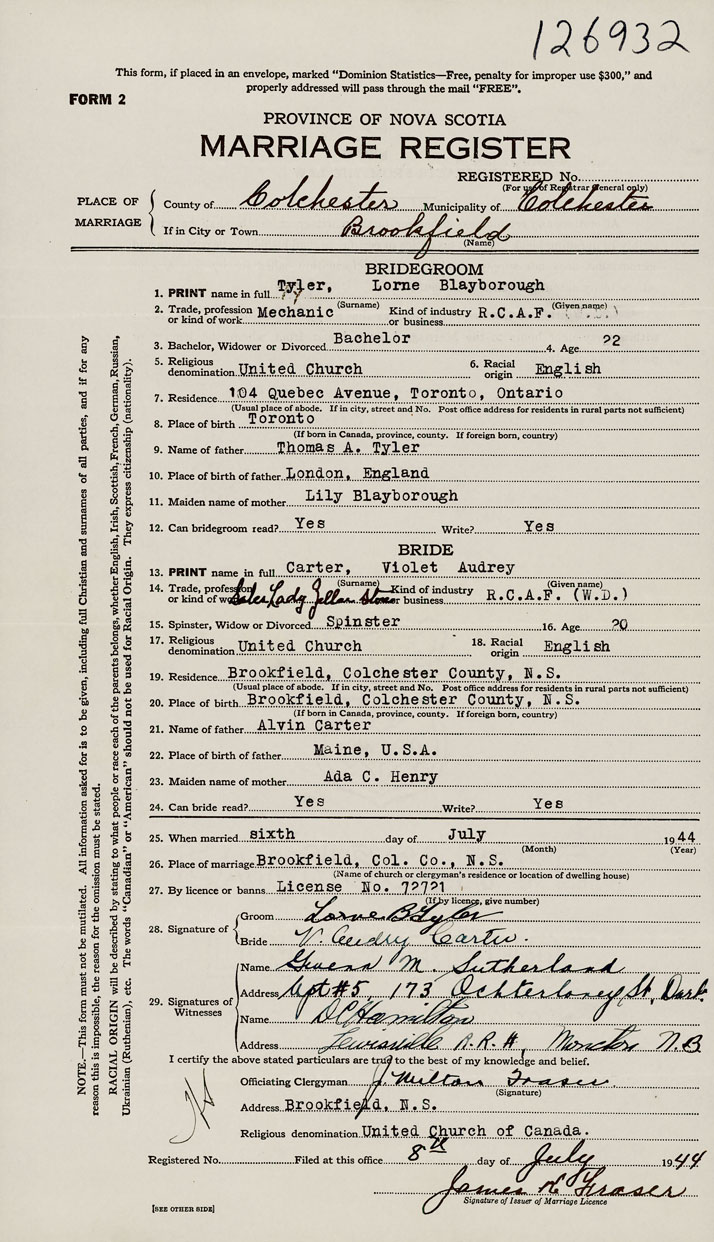 126932
This form, if placed in an envelope, marked "Dominion Statistics—Free, penalty for improper use $300," and
properly addressed will pass through the mail "FREE".
FORM 2
PROVINCE OF NOVA SCOTIA
MARRIAGE REGISTER
REGISTERED No.
(For use of Registrar General only)
PLACE OF MARRIAGE
County of Colchester Municipality of Colchester
If in City or Town Brookfield
(Name)
BRIDEGROOM
1. PRINT name in full Tyler, Lorne Blayborough
(Surname) (Given name)
2. Trade, profession or kind of work Mechanic Kind of industry or business R.C.A.F.
3. Bachelor, Widower or Divorced Bachelor 4. Age 22
5. Religious denomination United Church 6. Racial origin English
7. Residence 104 Quebec Avenue, Toronto, Ontario
(Usual place of abode. If in city, street and No. Post office address for residents in rural parts not sufficient)
8. Place of birth Toronto
(If born in Canada, province, county. If foreign born, country)
9. Name of father Thomas A. Tyler
10. Place of birth of father London, England
11. Maiden name of mother Lily Blayborough
12. Can bridegroom read? Yes Write? Yes
BRIDE
13. PRINT name in full Carter, Violet Audrey
(Surname) (Given name)
14. Trade, profession or kind of work Sales Lady Zellers Store Kind of industry or business R.C.A.F. (W.D.)
15. Spinster, Widow or Divorced Spinster 16. Age 20
17. Religious denomination United Church 18. Racial origin English
19. Residence Brookfield, Colchester County, N.S.
(Usual place of abode. If in city, street and No. Post office address for residents in rural parts not sufficient)
20. Place of birth Brookfield, Colchester County, N.S.
(If born in Canada, province, county. If foreign born, country)
21. Name of father Alvin Carter
22. Place of birth of father Maine, U.S.A.
23. Maiden name of mother Ada C. Henry
24. Can bride read? Yes Write? Yes
25. When married sixth day of July 1944
(Month) (Year)
26. Place of marriage Brookfield, Col. Co., N.S.
(Name of church or clergyman's residence or location of dwelling house)
27. By licence or banns License No. 72721
(If by licence, give number)
28. Signature of
Groom Lorne B Tyler
Bride V. Audry Carter.
29. Signatures of Witnesses
Name Gwenn M. Sutherland
Address Apt #5 173 Ochterloney St, Dart.
Name D C Hamilton
Address Lewisville R.R.#1 Moncton N.B
I certify the above stated particulars are true to the best of my knowledge and belief.
Officiating Clergyman J. Wilton Fraser
(Signature)
Address Brookfield, N.S.
Religious denomination United Church of Canada.
Registered No. Filed at this office 8th day of July 1944
James H Fraser
Signature of Issuer of Marriage Licence
[SEE OTHER SIDE]
NOTE.—This form must not be mutilated. All information asked for is to be given, including full Christian and surnames of all parties, and if for any
reason this is impossible, the reason for the omission must be stated.
RACIAL ORIGIN will be described by stating to what people or race each of the parents belongs, whether English, Irish, Scottish, French, German, Russian,
Ukrainian (Ruthenian), etc. The words "Canadian" or "American" should not be used for Racial Origin. They express citizenship (nationality).